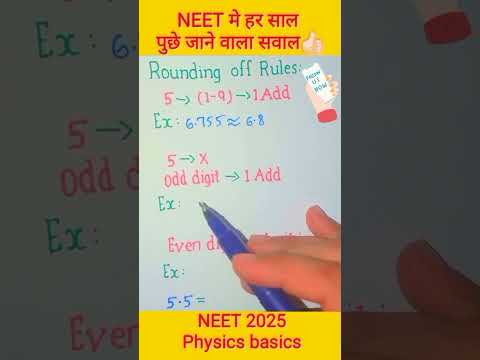 NEET मे हर साल
पुछे जाने वाला सवाल
Rounding off Rules:
5→(1-9)→1 Add
Ex: 6.755≈6.8
5→X
Odd digit→1 Add
Ex:
Even di
Ex:
5.5=
NEET 2025
Physics basics
FOLLOW
US
NOW